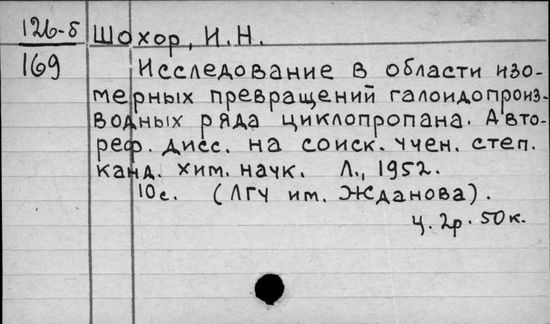 126-б
169
Шохор, И.Н.
Исследование в области изо-
мерных превращений галоидопроиз-
водных ряда циклопропана. Авто-
реф. дисс. на соиск. учен. степ.
канд. хим. наук. Л., 1952.
10с. (ЛГУ им. Жданова).
ц. 2р. 50к.